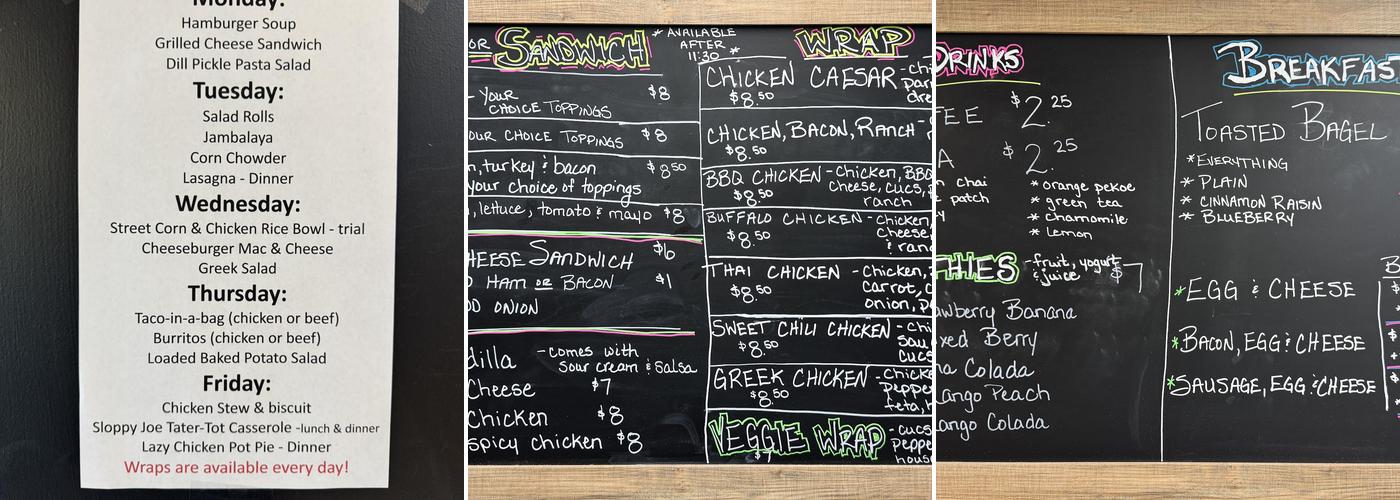 Monday:
Hamburger Soup
Grilled Cheese Sandwich
Dill Pickle Pasta Salad
Tuesday:
Salad Rolls
Jambalaya
Corn Chowder
Lasagna - Dinner
Wednesday:
Street Corn & Chicken Rice Bowl - trial
Cheeseburger Mac & Cheese
Greek Salad
Thursday:
Taco-in-a-bag (chicken or beef)
Burritos (chicken or beef)
Loaded Baked Potato Salad
Friday:
Chicken Stew & biscuit
Sloppy Joe Tater-Tot Casserole -lunch & dinner
Lazy Chicken Pot Pie - Dinner
Wraps are available every day!
OR SANDWICH
* AVAILABLE
AFTER
11:30 *
- YOUR $8
CHOICE TOPPINGS
OUR CHOICE TOPPINGS $8
, turkey & bacon $8.50
your choice of toppings
, lettuce, tomato & mayo $8
HEESE SANDWICH $6
HAM OR BACON $1
D ONION
dilla - comes with
sour cream & salsa
Cheese $7
Chicken $8
spicy chicken $8
WRAP
CHICKEN CAESAR - chi
$8.50 par
dre
CHICKEN, BACON, RANCH -
$8.50
BBQ CHICKEN - Chicken, BB
$8.50 cheese, cucs,
ranch
BUFFALO CHICKEN - chicken
$8.50 cheese
& ran
THAI CHICKEN - Chicken,
$8.50 carrot, c
onion, p
SWEET CHILI CHICKEN - Chi
$8.50 sau
cucs
GREEK CHICKEN - chick
$8.50 peppe
feta,
VEGGIE WRAP - cucs
$7 peppe
hous
DRINKS
FEE $2.25
A $2.25
n chai
patch
y
* orange pekoe
* green tea
* chamomile
* Lemon
THIES - fruit, yogurt
& juice $7
awberry Banana
xed Berry
na Colada
ango Peach
ango Colada
BREAKFAST
TOASTED BAGEL
* EVERYTHING
* PLAIN
* CINNAMON RAISIN
* BLUEBERRY
* EGG & CHEESE
* BACON, EGG & CHEESE
* SAUSAGE, EGG & CHEESE